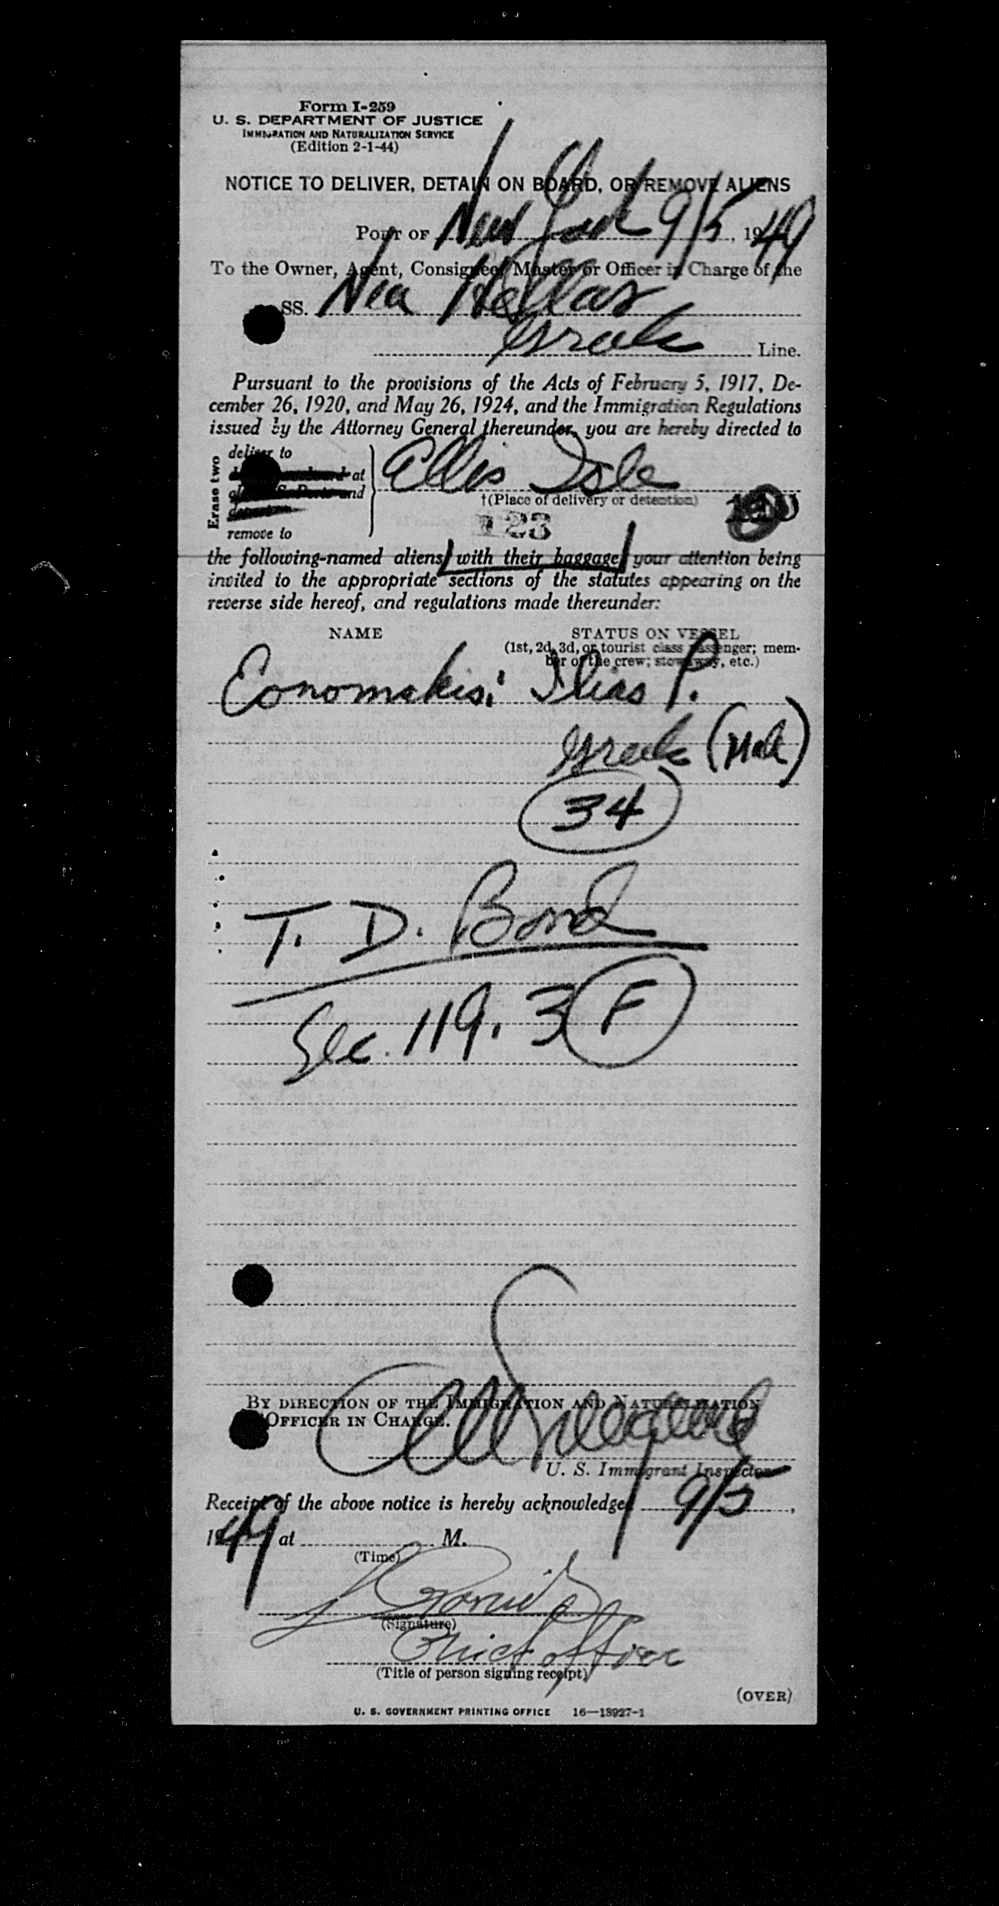 Form I-259
U. S. DEPARTMENT OF JUSTICE
IMMIGRATION AND NATURALIZATION SERVICE
(Edition 2-1-44)
NOTICE TO DELIVER, DETAIN ON BOARD, OR REMOVE ALIENS
PORT OF New York 9/5, 1949
To the Owner, Agent, Consignee, Master or Officer in Charge of the
SS. Nea Hellas
Greek Line.
Pursuant to the provisions of the Acts of February 5, 1917, De-
cember 26, 1920, and May 26, 1924, and the Immigration Regulations
issued by the Attorney General thereunder, you are hereby directed to
Erase two
deliver to
at
and
remove to
Ellis Isle
†(Place of delivery or detention)
123
the following-named aliens with their baggage your attention being
invited to the appropriate sections of the statutes appearing on the
reverse side hereof, and regulations made thereunder:
NAME STATUS ON VESSEL
(1st, 2d, 3d, or tourist class passenger; mem-
ber of the crew; stowaway, etc.)
Economakis: Ilias P.
Greek (Male)
34
T. D. Bond
Sec. 119. 3 F
BY DIRECTION OF THE IMMIGRATION AND NATURALIZATION
OFFICER IN CHARGE.
U. S. Immigrant Inspector
Receipt of the above notice is hereby acknowledged 9/5,
1949 at M.
(Time)
(Signature)
Chief officer
(Title of person signing receipt)
(OVER)
U. S. GOVERNMENT PRINTING OFFICE 16—18927-1